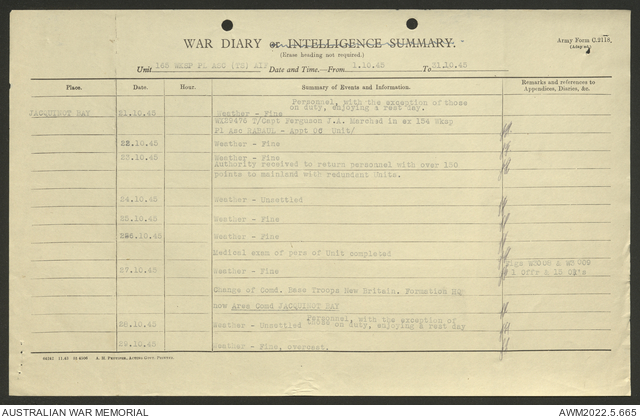 WAR DIARY or INTELLIGENCE SUMMARY.
(Erase heading not required.)
Army Form C.2118.
Unit 165 WKSP PL ASC (TS) AIF Date and Time.—From 1.10.45 To 31.10.45
Place. Date. Hour. Summary of Events and Information. Remarks and references to Appendices, Diaries, &c.
Personnel, with the exception of those
on duty, enjoying a rest day.
JACQUINOT BAY 21.10.45 Weather - Fine
T/Capt Ferguson J.A. Marched in ex 154 Wksp
Pl Aasc RABAUL - Appt OC Unit/
22.10.45 Weather - Fine
23.10.45 Weather - Fine
Authority received to return personnel with over 150
points to mainland with redundant Units.
24.10.45 Weather - Unsettled
25.10.45 Weather - Fine
26.10.45 Weather - Fine
Medical exam of pers of Unit completed
27.10.45 Weather - Fine
1 Offr & 18 OR's
Change of Comd. Base Troops New Britain. Formation HQ
now Area Comd JACQUINOT BAY
Personnel, with the exception of
28.10.45 Weather - Unsettled those on duty, enjoying a rest day
29.10.45 Weather - Fine, overcast.
AUSTRALIAN WAR MEMORIAL
AWM2022.5.665